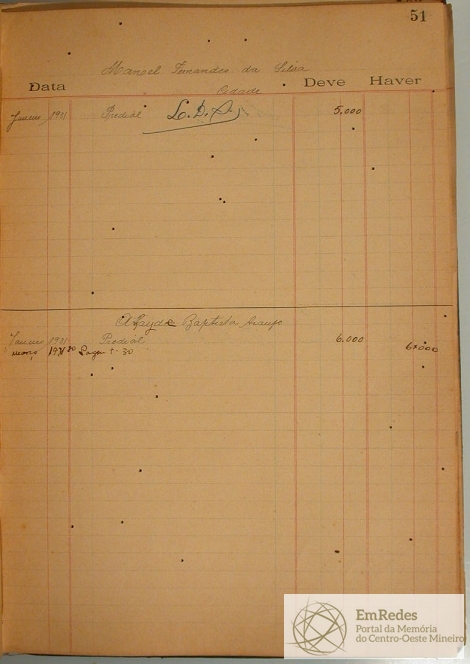 51
Manoel Fernandes da Silva
Data Cidade Deve Haver
Janeiro 1911 Predial L.D.A. 5.000
Baptista Araujo
Janeiro 1911 Predial 6.000
março 1911 30 Pagou 6.000
EmRedes
Portal da Memória
do Centro-Oeste Mineiro